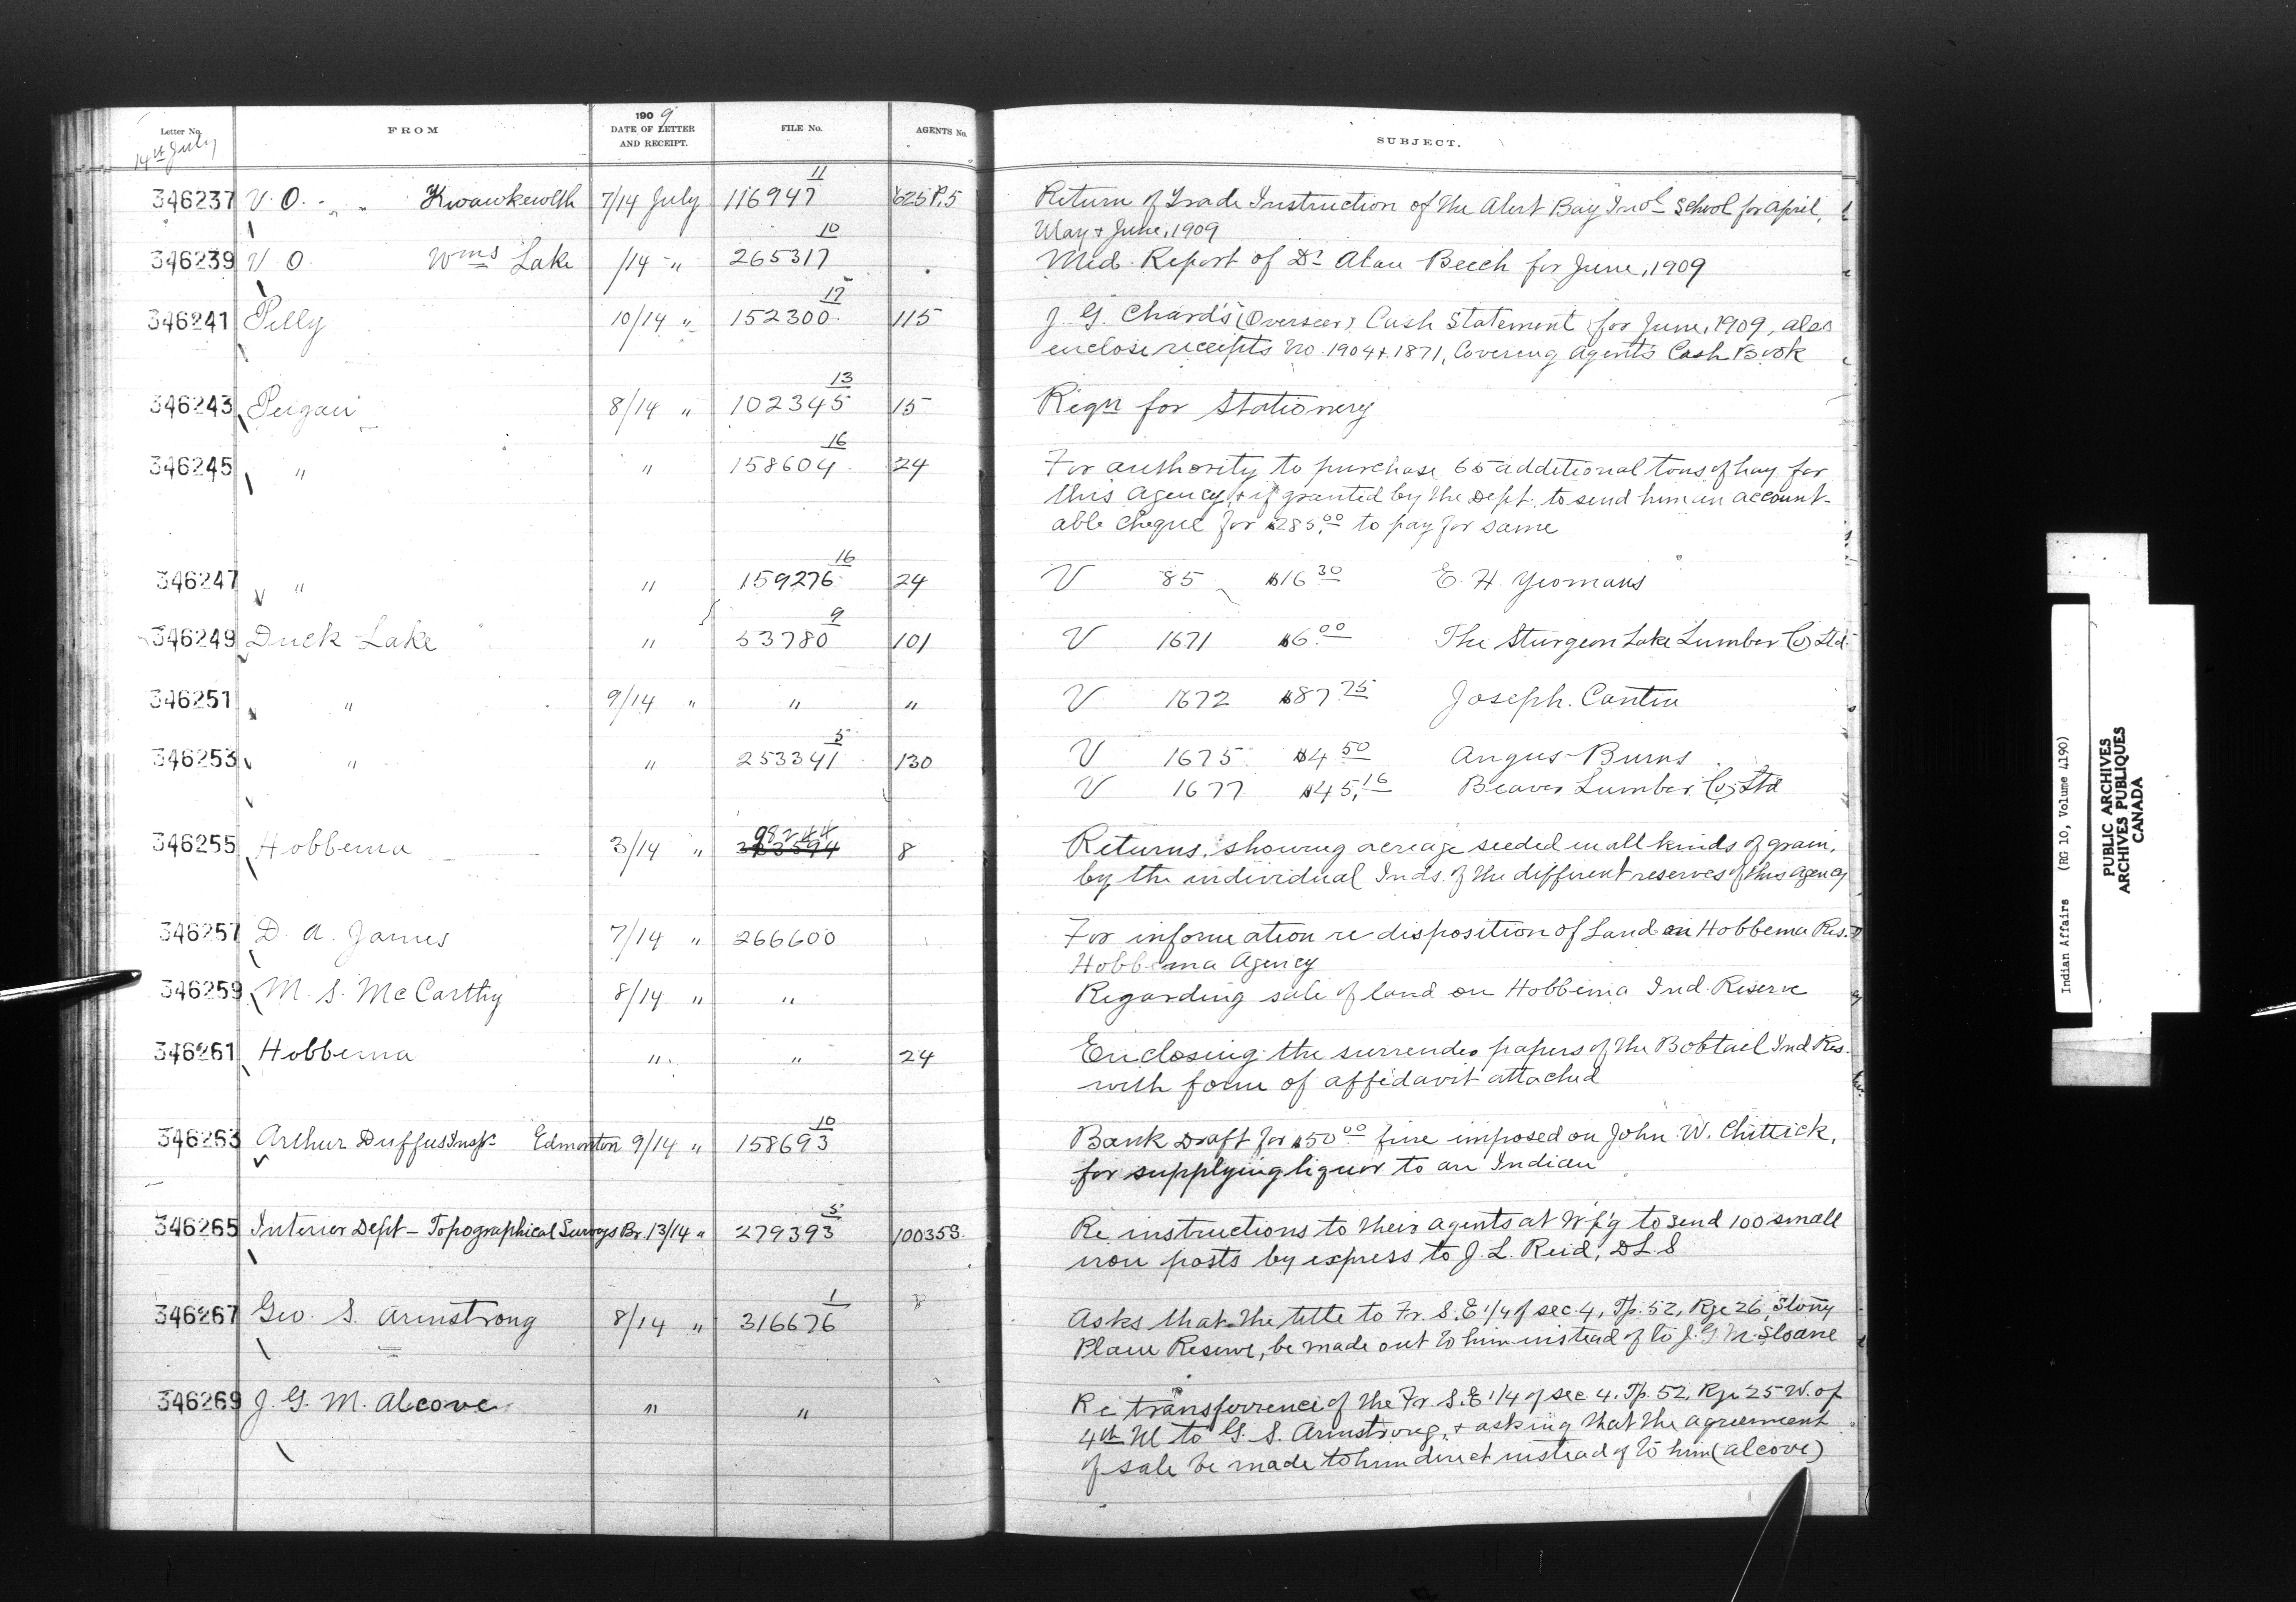 Letter No. FROM 1909 DATE OF LETTER AND RECEIPT. FILE No. AGENTS No. SUBJECT.
14th July
346237 V. O. " " Kwawkewlth 7/14 July 116947 11 625 P.5 Return of Trade Instruction of the Alert Bay Indl School for April,
May & June, 1909
346239 V O. Wms Lake /14 " 265317 10 Med. Report of Dr Alan Beech for June, 1909
346241 Pelly 10/14 " 152300 17 115 J. G. Chard's (Overseer) Cash Statement for June, 1909, also
enclose receipts No. 1904 & 1871, Covering Agent's Cash Book
346243 Peigan 8/14 " 102345 13 15 Reqn for Stationery
346245 " " 158604 16 24 For authority to purchase 65 additional tons of hay for
this Agency, & if granted by the Dept. to send him an account-
able cheque for $285.00 to pay for same
346247 " " 159276 16 24 V 85 $16 30 E. H. Yeomans
346249 Duck Lake " 53780 9 101 V 1671 $6.00 The Sturgeon Lake Lumber Co Ltd.
346251 " 9/14 " " " V 1672 $87.75 Joseph. Cantin
346253 " " 253341 5 130 V 1675 $4 50 Angus Burns
V 1677 $45.16 Beaver Lumber Co Ltd
346255 Hobbema 3/14 " 98244 8 Returns, showing acreage seeded in all kinds of grain,
by the individual Inds. of the different reserves of this Agency
346257 D. A. James 7/14 " 266600 For information re disposition of Land on Hobbema Res.
Hobbema Agency
346259 M. S. McCarthy 8/14 " " Regarding sale of land on Hobbema Ind. Reserve
346261 Hobbema " " 24 Enclosing the surrender papers of the Bobtail Ind Res.
with form of affidavit attached
346263 Arthur Duffus Insp. Edmonton 9/14 " 158693 10 Bank Draft for $50 00 fine imposed on John W. Chittick,
for supplying liquor to an Indian
346265 Interior Dept - Topographical Surveys Br. 13/14 " 279393 5 100353 Re instructions to their agents at W'p'g to send 100 small
iron posts by express to J. L. Reid, D L. S
346267 Geo. S. Armstrong 8/14 " 316676 1 8 Asks that the title to Fr. S. E 1/4 of sec. 4, Tp. 52, Rge 26, Stony
Plain Reserve, be made out to him instead of to J. G. M. Sloane
346269 J. G. M. Alcove " " Re transferrence of the Fr. S.E 1/4 of sec. 4. Tp. 52, Rge 25 W. of
4th M to G. S. Armstrong, & asking that the agreement
of sale be made to him direct instead of to him (Alcove)
Indian Affairs (RG 10, Volume 4190)
PUBLIC ARCHIVES
ARCHIVES PUBLIQUES
CANADA